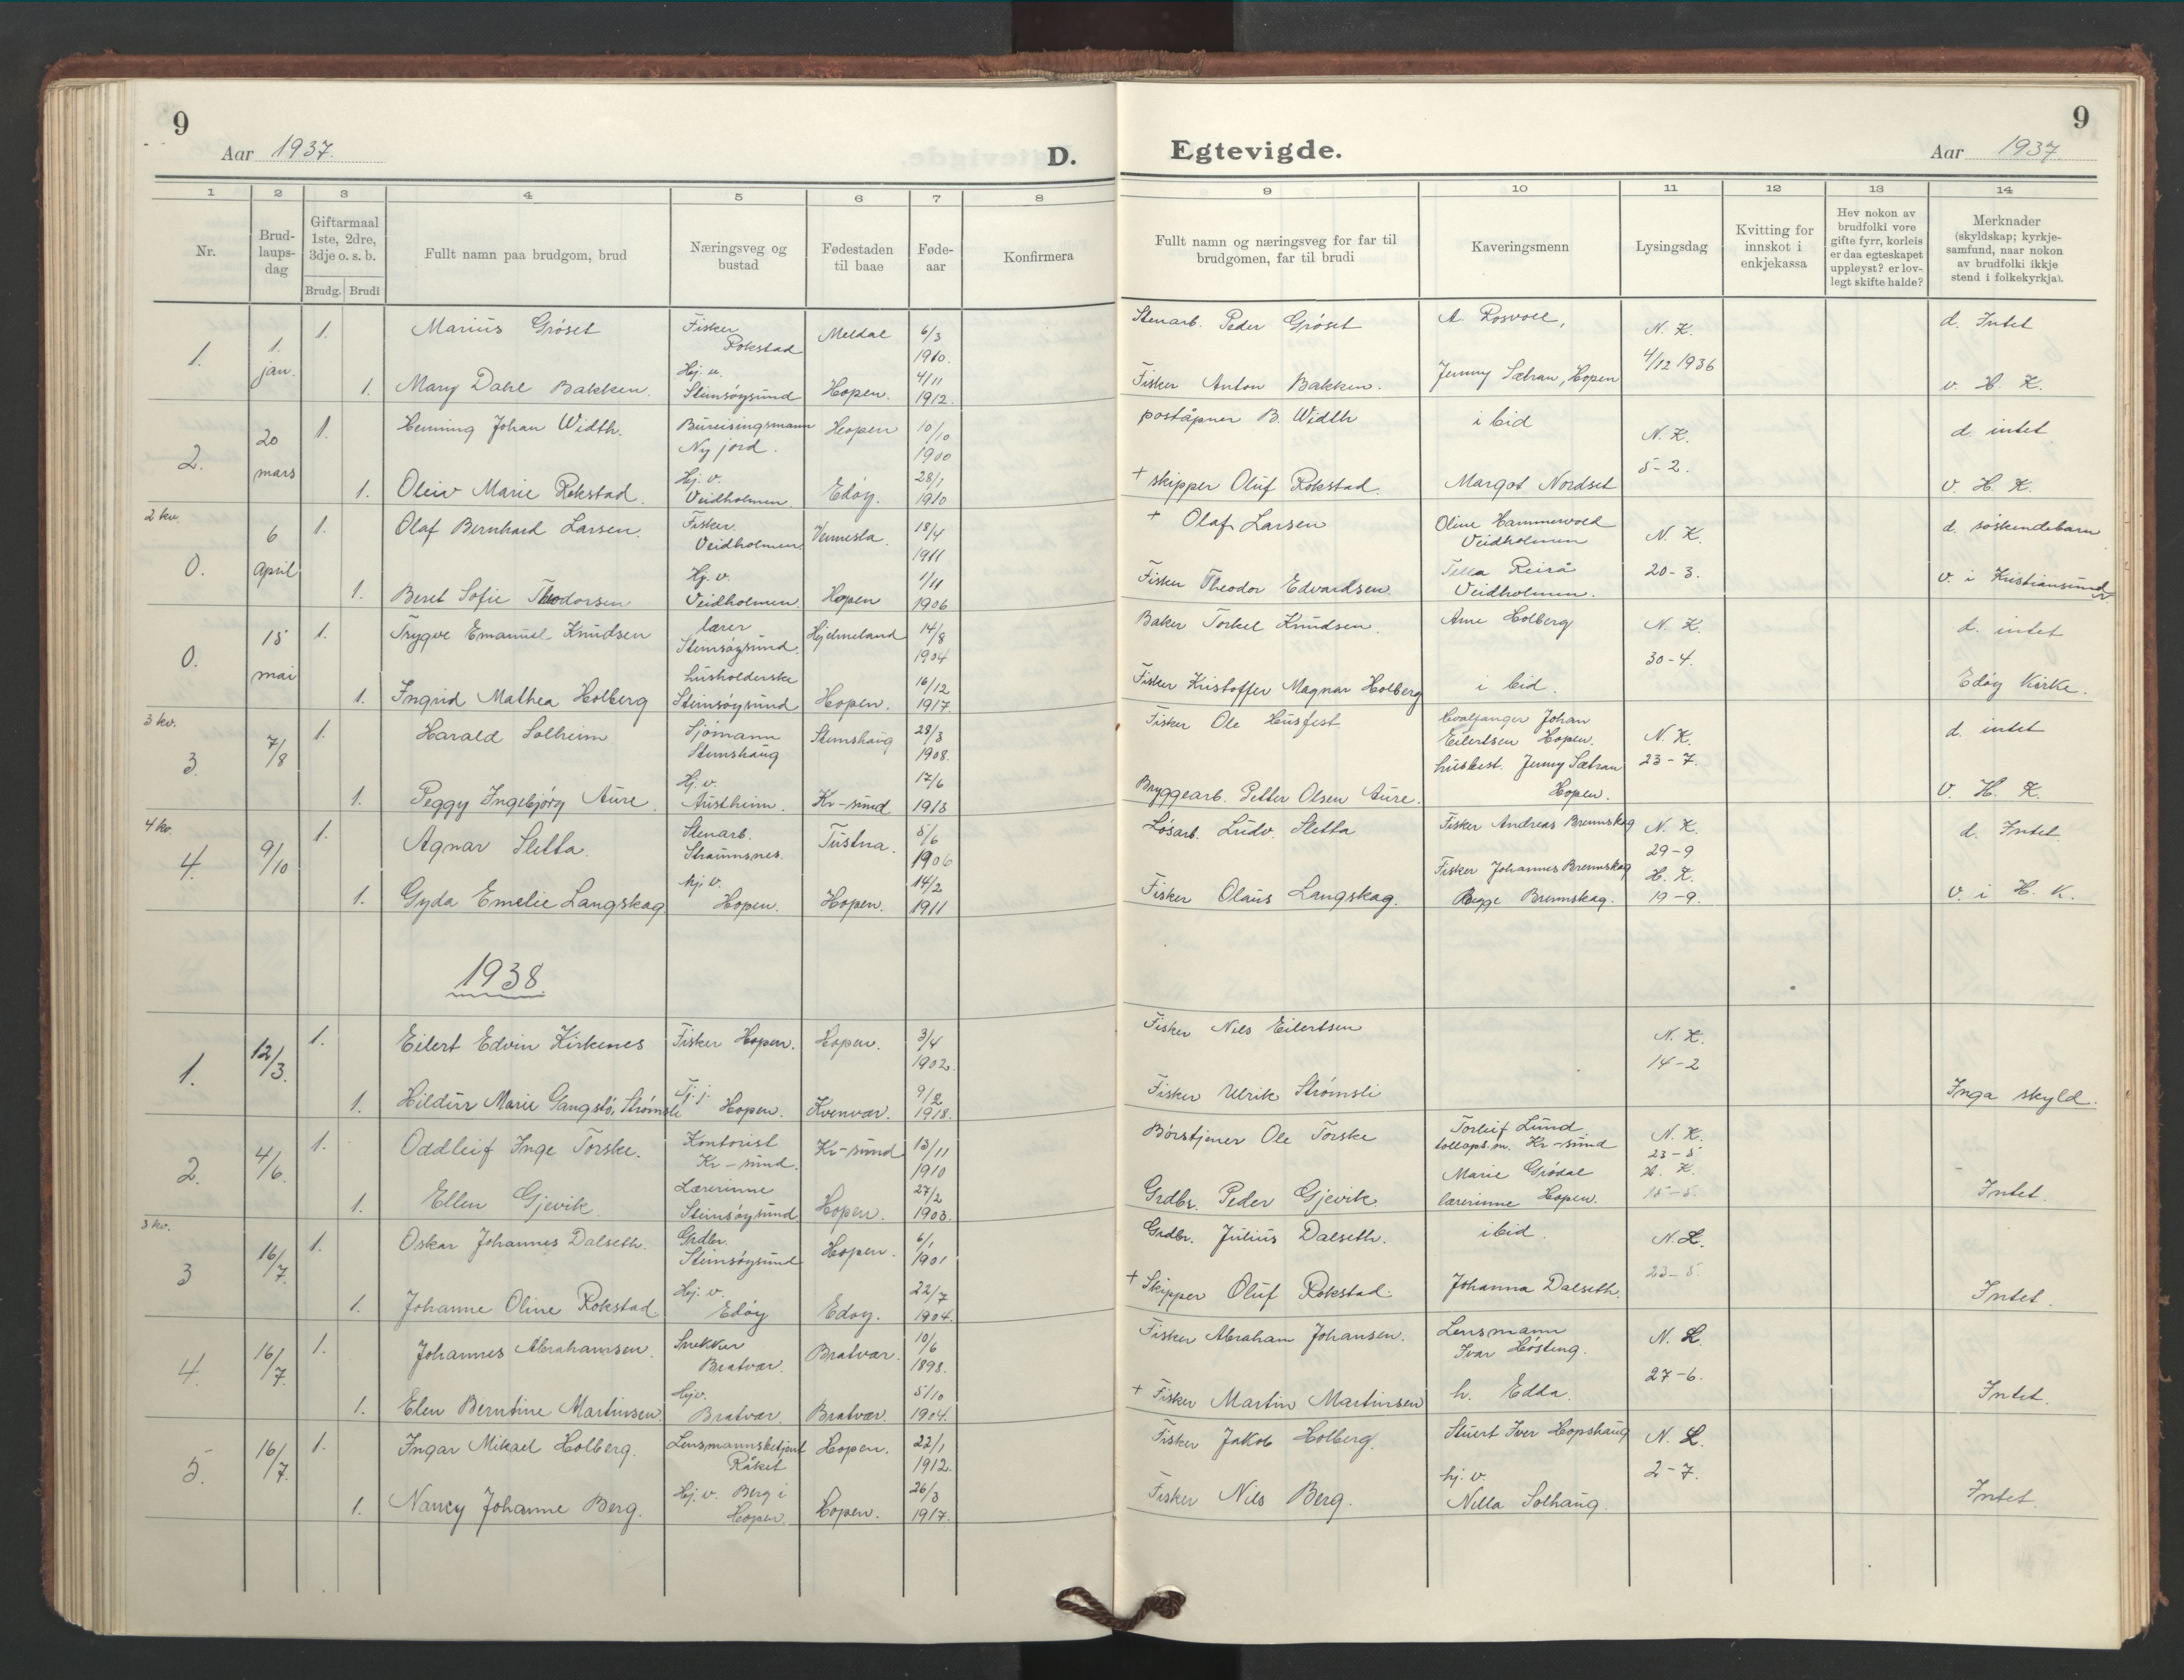 9
Aar 1937.
D.
Egtevigde.
Aar 1937.
9
1 2 3 4 5 6 7 8 9 10 11 12 13 14
Nr.
Brud-
laups-
dag
Giftarmaal
1ste, 2dre,
3dje o. s. b.
Brudg. Brudi
Fullt namn paa brudgom, brud
Næringsveg og
bustad
Fødestaden
til baae
Føde-
aar
Konfirmera
Fullt namn og næringsveg for far til
brudgomen, far til brudi
Kaveringsmenn
Lysingsdag
Kvitting for
innskot i
enkjekassa
Hev nokon av
brudfolki vore
gifte fyrr, korleis
er daa egteskapet
uppløyst? er lov-
legt skifte halde?
Merknader
(skyldskap; kyrkje-
samfund, naar nokon
av brudfolki ikkje
stend i folkekyrkja).
1. 1. jan. 1. Marius Grøset Fisker Rokstad Meldal 6/3 1910. Stenarb. Peder Grøset A. Rosvoll, N. K. 4/12 1936 d. Intet
1. Mary Dahl Bakken. Hj. v. Steinsøysund Hopen. 4/11 1912. Fisker Anton Bakken. Jenny Sætran, Hopen v. H. K.
2. 20 mars 1. Henning Johan Width. Bureisingsmann Ny jord. Hopen 10/10 1900 poståpner B. Width i bid N. K. 5-2. d. intet
1. Oleiv Marie Rokstad. Hj. v. Veidholmen. Edøy. 28/1 1910 + skipper Oluf Rokstad. Margot Nordset v. H. K.
2 kv.
0. 6 April 1. Olaf Bernhard Larsen. Fisker. Veidholmen. Vennesla. 18/4 1911 + Olaf Larsen Oline Hammervold Veidholmen N. K. 20-3. d. søskendebarn
1. Beret Sofie Theodorsen Hj. v. Veidholmen. Hopen 1/11 1906 Fisker Theodor Edvardsen Tella Reirå Veidholmen. v. i Kristiansund
0. 15 mai 1. Trygve Emanuel Knudsen lærer Steinsøysund. Hjelmeland 14/8 1904 Baker Torkel Knudsen. Arne Holberg N. K. 30-4. d. intet
1. Ingrid Mathea Holberg husholderske Steinsøysund Hopen. 16/12 1917. Fisker Kristoffer Magnar Holberg i bid. Edøy Kirke.
3 kv.
3. 7/8 1. Harald Solheim Sjømann Stemshaug Stemshaug 28/3 1908. Fisker Ole Husfest Hvalfanger Johan Eilertsen Hopen. N. K. 23-7. d. intet
1. Peggy Ingebjørg Aure. Hj. v. Austheim. Kr-sund 17/6 1913 Bryggearb. Petter Olsen Aure. husbest. Jenny Sætran Hopen. v. H. K.
4 kv.
4. 9/10 1. Agnar Sletta. Stenarb. Straumsnes. Tustna. 5/6 1906 Løsarb. Ludv. Sletta Fisker Andreas Brennskag N. K. 29-9 d. Intet.
1. Gyda Emelie Langskag hj. v. Hopen. Hopen. 14/2 1911 Fisker Olaus Langskag. Fisker Johannes Brennskag Begge Brennskag. H. K. 19-9. v. i H. K.
1938
1. 12/3. 1. Eilert Edvin Kirkenes Fisker Hopen. Hopen. 3/4 1902. Fisker Nils Eilertsen N. K. 14-2
1. Hildur Marie Gangstø, Strømsli Tj. j. Hopen. Kvenvær. 9/2 1918. Fisker Ulrik Strømsli Inga skyld.
2. 4/6. 1. Oddleif Inge Torske. Kontorist Kr-sund. Kr-sund 13/11 1910 Børstjener Ole Torske Torleif Lund tollops.m. Kr-sund N. K. 23-5
1. Ellen Gjevik. Lærerinne Steinsøysund Hopen. 27/2 1903. Grdbr. Peder Gjevik. Marie Grødal lærerinne Hopen. H. K. 15-5. Intet.
3 kv.
3 16/7. 1. Oskar Johannes Dalseth. Grdbr. Steinsøysund Hopen. 6/1 1901 Grdbr. Julius Dalseth. ibid. N. L. 23-5.
1. Johanne Oline Rokstad. Hj. v. Edøy Edøy. 22/7 1904. + Skipper Oluf Rokstad. Johanna Dalseth. Intet.
4. 16/7. 1. Johannes Abrahamsen. Snekker Bratvær. Bratvær. 10/6 1898. Fisker Abraham Johansen. Lensmann Ivar Høsteng. N. L. 27-6.
1. Elen Berntine Martinsen. Hjv. Bratvær. Bratvær. 5/10 1904. + Fisker Martin Martinsen h. Edda. Intet.
5. 16/7. 1. Ingar Mikael Holberg. Lensmannsbetjent Råket Hopen. 22/1 1912. Fisker Jakob Holberg. Stuert Iver Hopshaug N. L. 2-7.
1. Nancy Johanne Berg. Hj. v. Berg i Hopen. Hopen. 26/3 1917. Fisker Nils Berg. hj. v. Nella Solhaug. Intet.